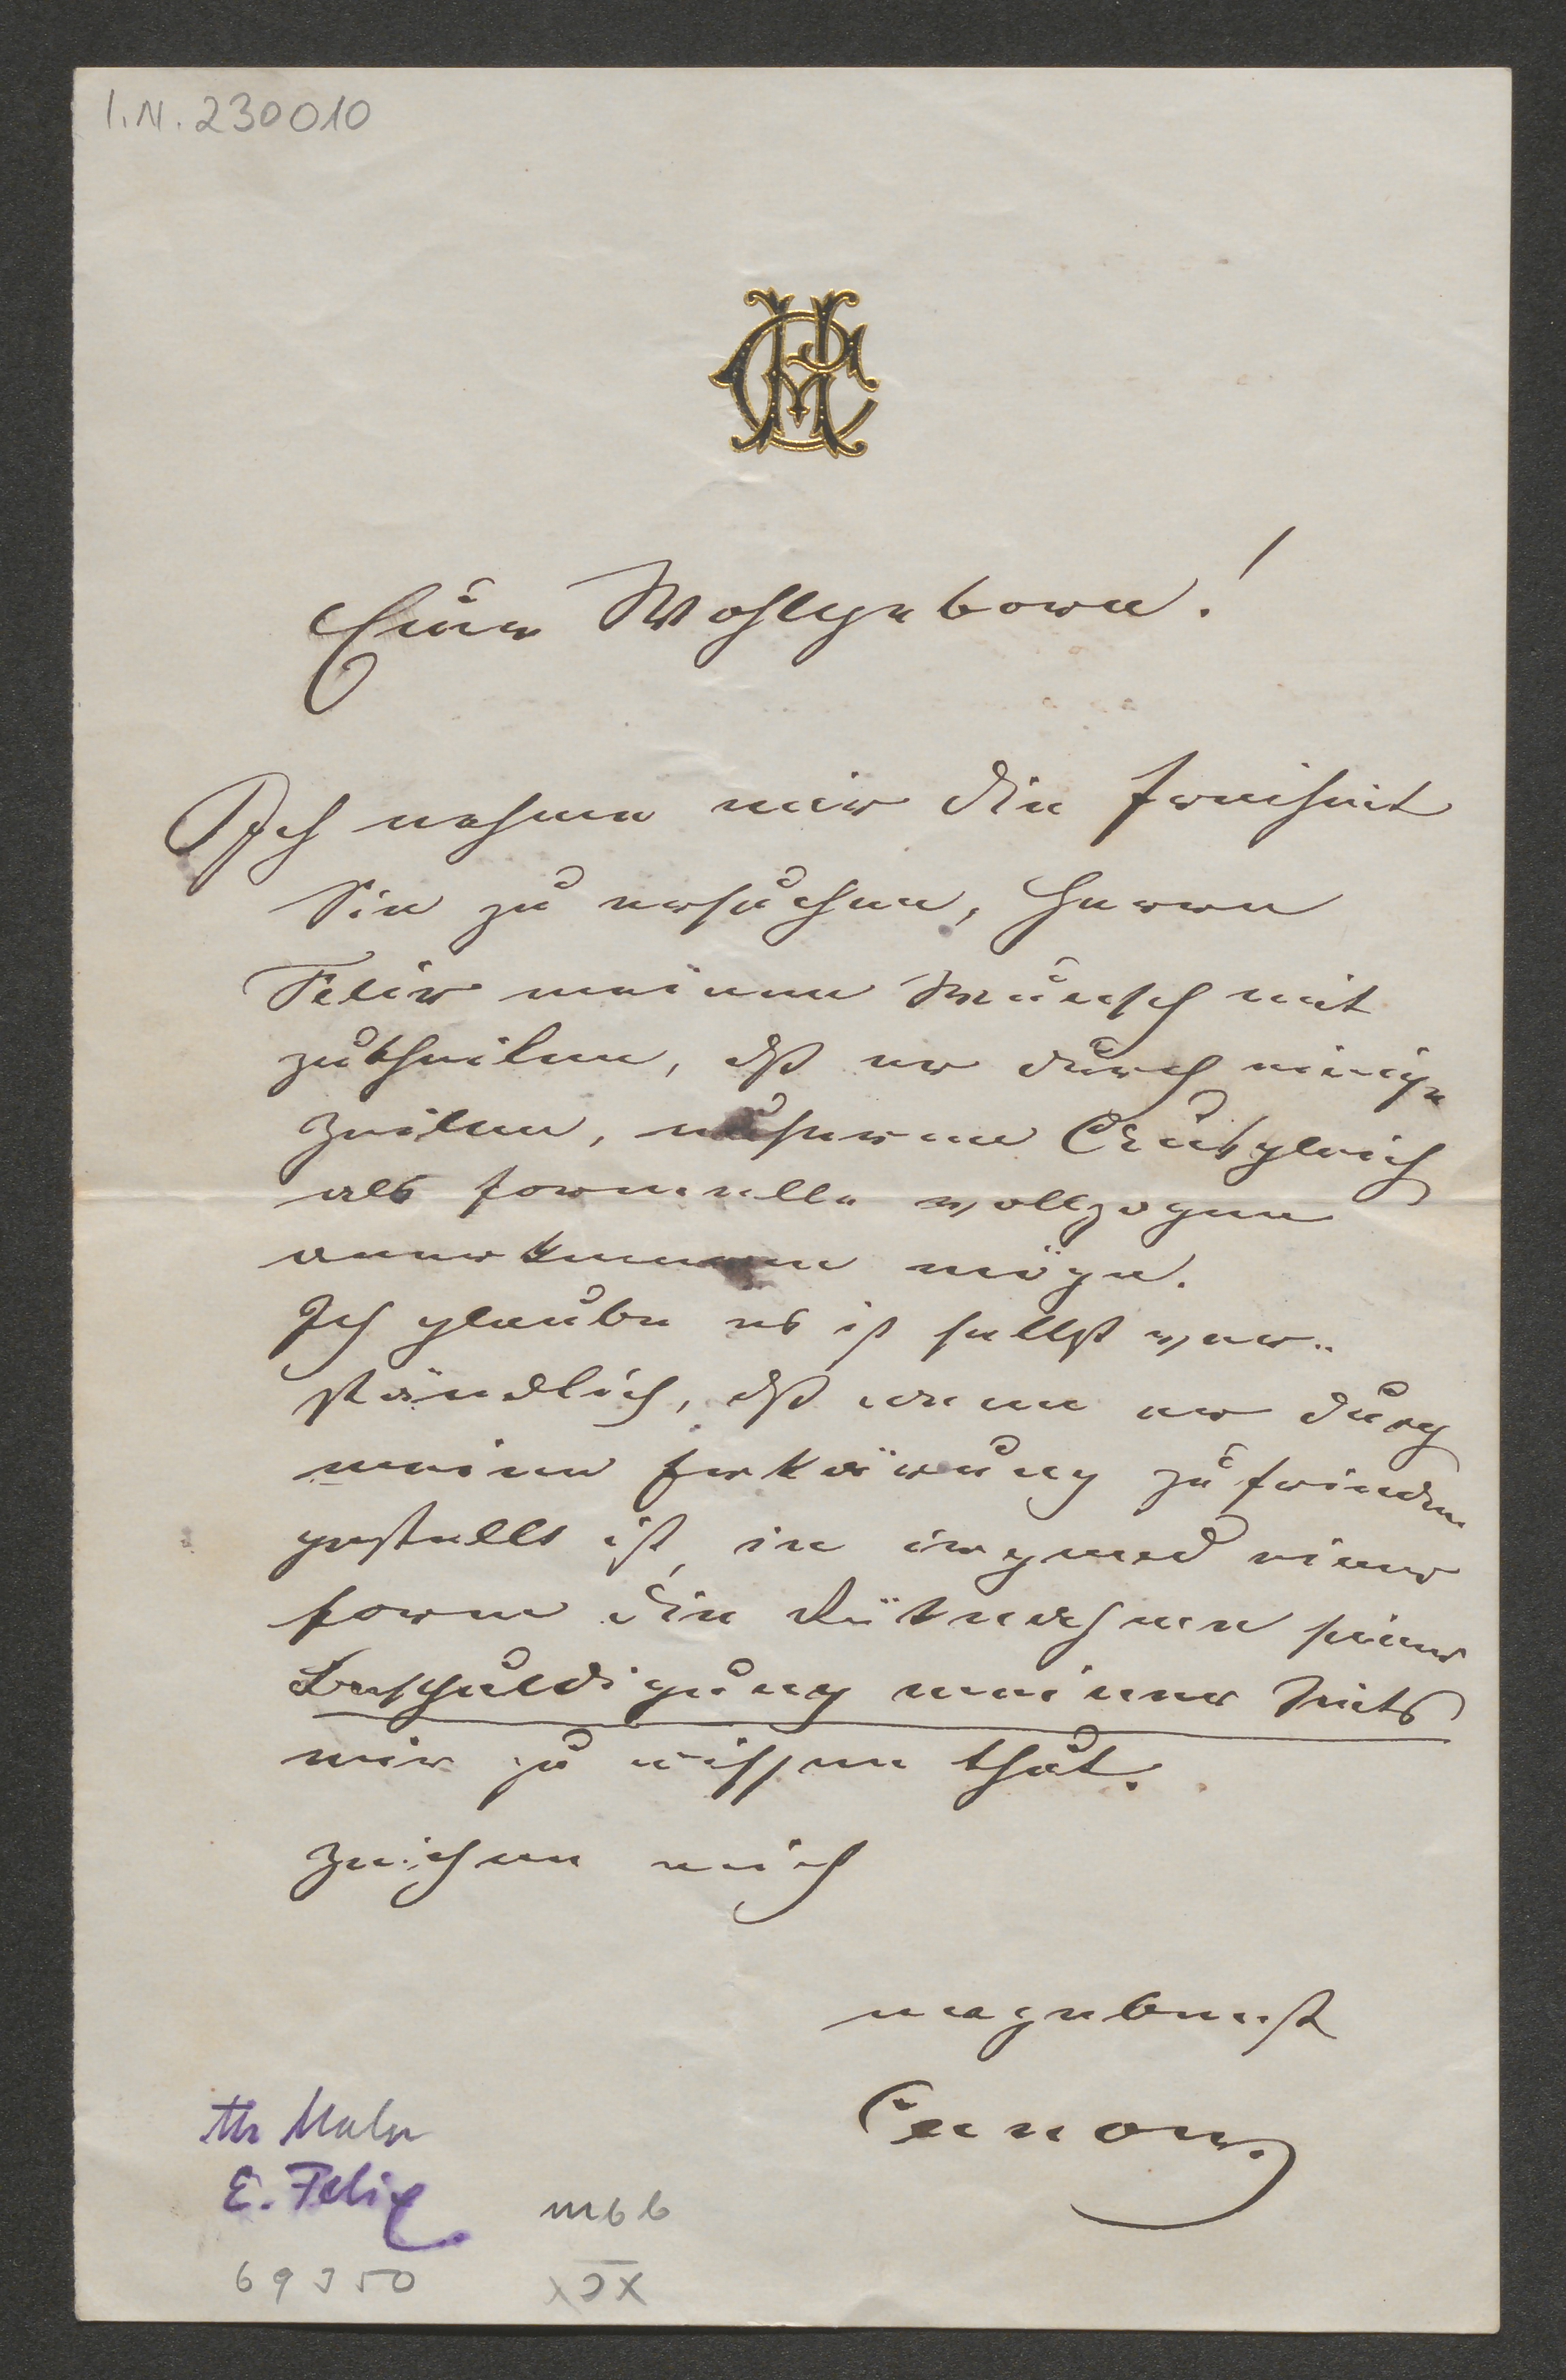 I.N. 230010
Euer Wohlgeboren!
Ich nehme mir die Freiheit
Sie zu ersuchen, Herrn
Felix meinen Wunsch mit
zutheilen, dß er durch einige
Zeilen, unseren Ausgleich
als formelle vollzogen
anerkennen möge.
Ich glaube es ist selbst ver-
ständlich, dß wenn er durch
meine Erklärung zufrieden
gestellt ist, in irgend einer
Form die Rüknahme seiner
Beschuldigung meiner Seits
mir zu wissen thut.
Zeichne mich
ergebenst
Canon.
Maler
E. Felix
69350